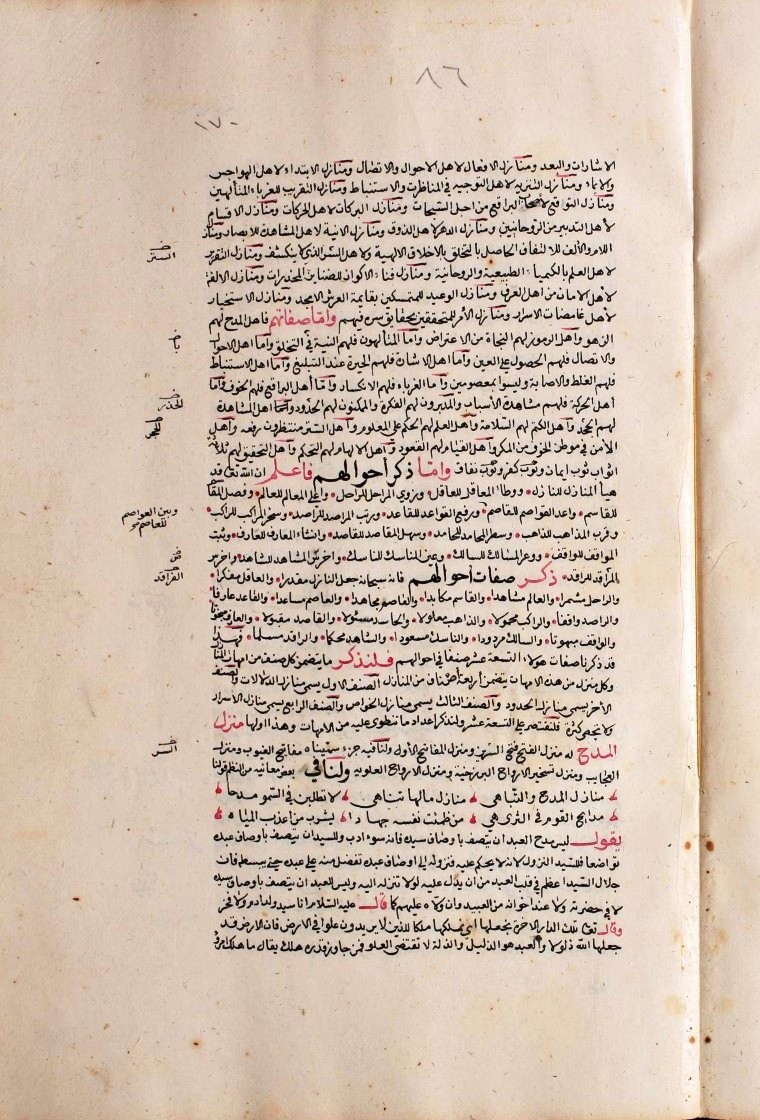 ٨٦
١٧٠
الاشارات والبعد ومنازل الافعال لاهل الاحوال والاتصال ومنازل الابتداء لاهل الهواجس
والايماء ومنازل التنزيه لاهل التوجيه في المناظرات والاستنباط ومنازل التقريب للغرباء المتألهين
ومنازل التوقع لأصحاب البراقع من اجل السبحات ومنازل البركات لاهل الحركات ومنازل الاقسام
لأهل التدبير من الروحانيين ومنازل الدهر لاهل الذوق ومنازل الانية لاهل المشاهدة للابصار ومنازل
اللام والألف للالتفاف الحاصل بالتخلق بالاخلاق الالهية ولاهل السر الذي لا ينكشف ومنازل التقرير
لاهل العلم بالكمياء الطبيعية والروحانية ومنازل فناء الاكوان للضنائن المخدرات ومنازل الالفة
لأهل الامان من اهل الغرف ومنازل الوعيد للمتمسكين بقايمة العرش الامجد ومنازل الاستخبار
لاهل غامضات الاسرار ومنازل الأمر للمتحققين بحقايق سره فيهم وأما صفاتهم فاهل المدح لهم
الزهو وأهل الرموز لهم النجاة من الاعتراض وأما المتألهون فلهم التيه في التخلق وأما اهل الاحوال
والاتصال فلهم الحصول على العين وأما اهل الاشارة فلهم الحيرة عند التبليغ وأما اهل الاستنباط
فلهم الغلط والاصابة وليسوا بمعصومين وأما الغرباء فلهم الانكسار وأما أهل البراقع فلهم الخوف وأما
أهل الحركة فلهم مشاهدة الأسباب والمدبرون لهم الفكرة والممكنون لهم الحدود وأما اهل المشاهدة
لهم الجحد وأهل الكتم لهم السلامة وأهل العلم لهم الحكم على المعلوم وأهل الستر منتظرون رفعه وأهل
الأمن في موطن الخوف من المكر وأهل القيام لهم القعود وأهل الالهام لهم التحكم وأهل التحقيق لهم ثلاثة
اثواب ثوب ايمان وثوب كفر وثوب نفاق وأما ذكر أحوالهم فاعلم ان الله تعالى قد
هيأ المنازل للنازل ووطأ المعاقل للعاقل وزوى المراحل للراحل وأعلى المعالم للعالم وفصل المقاسم
للقاسم وأعد القواصم للقاصم ورفع القواعد للقاعد ورتب المراصد للراصد وسخر المراكب للراكب
وقرب المذاهب للذاهب وسطر المحامد للحامد وسهل المقاصد للقاصد وانشاء المعارف للعارف وثبت
المواقف للواقف ووعر المسالك للسالك وعين المناسك للناسك وأخرس المشاهد للشاهد واحرس
المراقد للراقد ذكر صفات أحوالهم فانه سبحانه جعل النازل مقدرا والعاقل مفكرا
والراحل مشمرا والعالم مشاهدا والقاسم مكابدا والقاصم مجاهدا والعاصم مساعدا والقاعد عارفا
والراصد واقفا والراكب محمولا والذاهب معلولا والحامد مسئولا والقاصد مقبولا والعارف مبخوتا
والواقف مبهوتا والسالك مردودا والناسك مسعودا والشاهد محكما والراقد مسلما فهذا
قد ذكرنا صفات هولاء التسعة عشر صنفا في احوالهم فلنذكر ما يتضمن كل صنف من امهات المنازل
وكل منزل من هذه الامهات يتضمن أربعة أصناف من المنازل الصنف الاول يسمى منازل الدلالات والصنف
الأخر يسمى منازل الحدود والصنف الثالث يسمى منازل الخواص والصنف الرابع يسمى منازل الأسرار
ولا تحصى كثرة فلنقتصر على التسعة عشر ولنذكر اعداد ما تنطوي عليه من الامهات وهذا اولها منزل
المدح له منزل الفتح فتح السرين ومنزل المفاتح الأول ولنا فيه جزء سميناه مفاتيح الغيوب ومنزل
العجايب ومنزل تسخير الارواح البرزخية ومنزل الارواح العلوية ولنا في بعض معانيه من النظم قولنا
منازل المدح والتباهي منازل مالها تناهي لا تطلبن في السمو مدحا
مدايح القوم في الثرى هي من ظمئت نفسه جهادا يشرب من أعذب المياه
يقول ليس مدح العبد ان يتصف باوصاف سيده فانه سوء ادب وللسيد ان يتصف باوصاف عبده
تواضعا فللسيد النزول لانه لا يحكم عليه فنزوله الى اوصاف عبده تفضل منه على عبده حتى يبسطه فان
جلال السيد اعظم في قلب العبد من ان يدل عليه لولا تنزله اليه وليس للعبد ان يتصف باوصاف سيده
لا في حضرته ولا عند اخوانه من العبيد وان ولاه عليهم كما قال عليه السلام انا سيد ولد ادم ولا فخر
وقال تعالى تلك الدار الاخرة نجعلها اي نملكها ملكا للذين لا يريدون علوا في الارض فان الارض قد
جعلها الله ذلولا والعبد هو الذليل والذلة لا تقتضي العلو فمن جاوز قدره هلك يقال ما هلك امرؤ
الستر
الحذر
وبين العواصم
للعاصم
السر